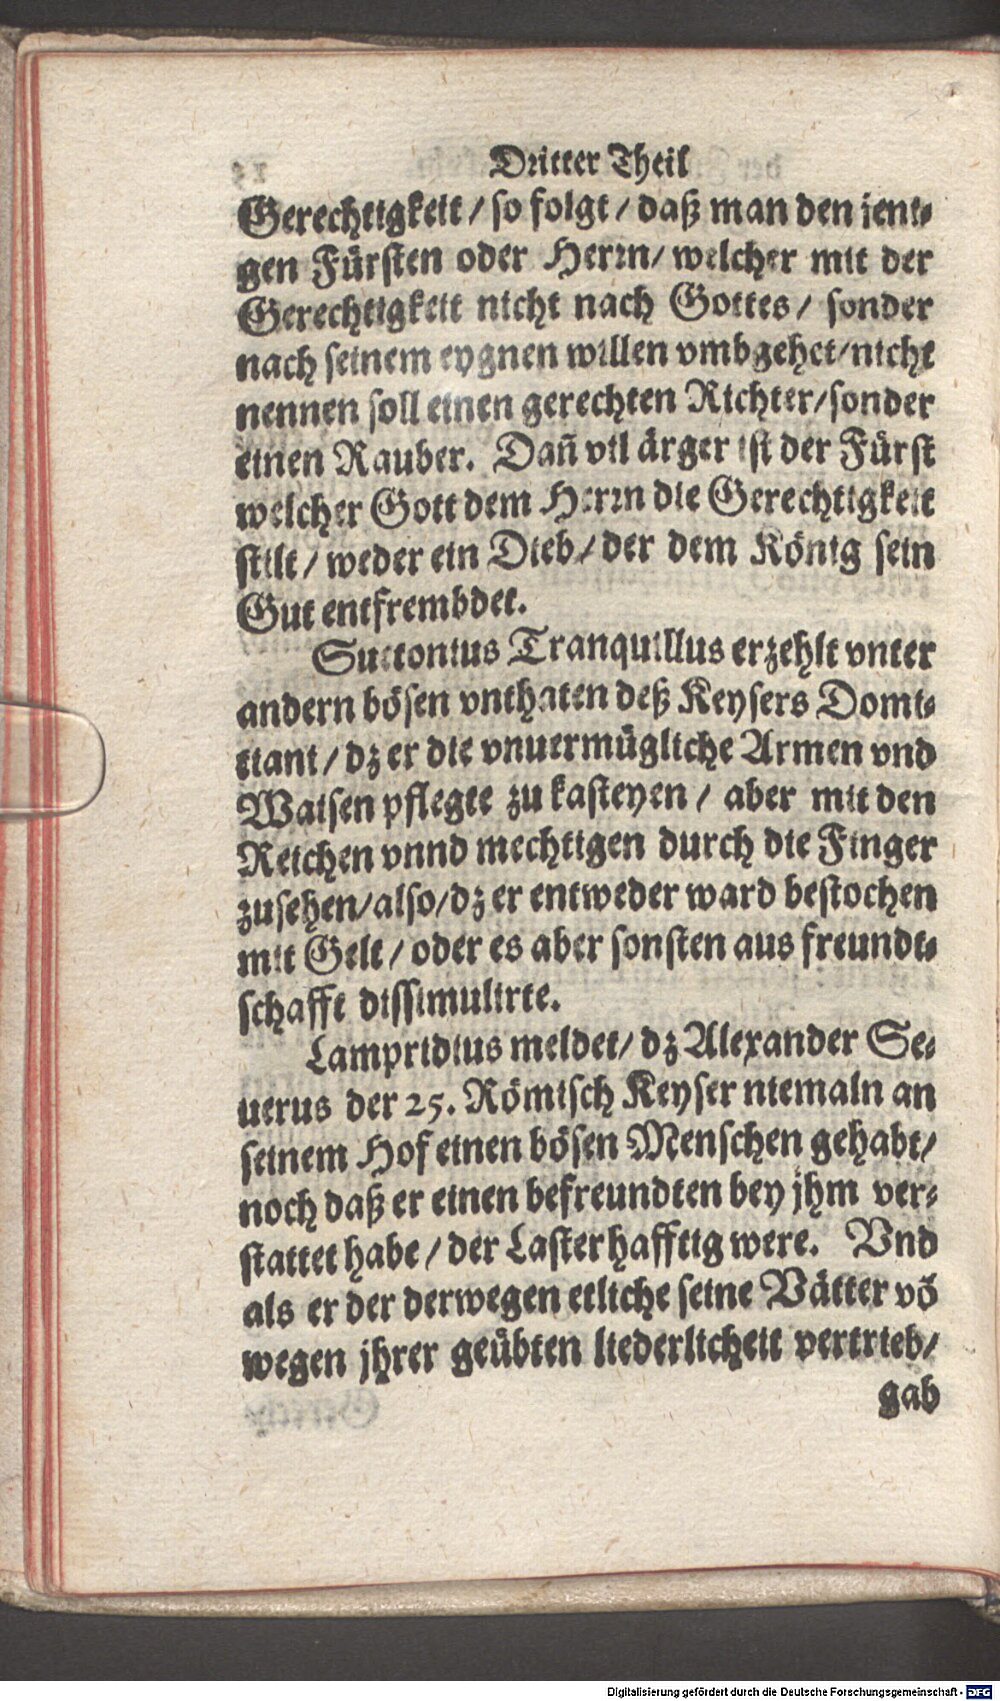 Dritter Theil
Gerechtigkeit / so folgt / daß man den jeni⸗
gen Fürsten oder Herrn / welcher mit der
Gerechtigkeit nicht nach Gottes / sonder
nach seinem eygnen willen vmbgehet / nicht
nennen soll einen gerechten Richter / sonder
einen Rauber. Dañ vil ärger ist der Fürst
welcher Gott dem Herrn die Gerechtigkeit
stilt / weder ein Dieb / der dem König sein
Gut entfrembdet.
Suetonius Tranquillus erzehlt vnter
andern bösen vnthaten deß Keysers Domi⸗
tiani / dz er die vnuermügliche Armen vnd
Waisen pflegte zu kasteyen / aber mit den
Reichen vnnd mechtigen durch die Finger
zusehen / also / dz er entweder ward bestochen
mit Gelt / oder es aber sonsten aus freundt⸗
schafft dissimulirte.
Lampridius meldet / dz Alexander Se⸗
uerus der 25. Römisch Keyser niemaln an
seinem Hof einen bösen Menschen gehabt /
noch daß er einen befreundten bey jhm ver⸗
stattet habe / der Lasterhafftig were. Vnd
als er der derwegen etliche seine Vätter võ
wegen jhrer geübten liederlicheit vertrieb /
gab
Digitalisierung gefördert durch die Deutsche Forschungsgemeinschaft - DFG